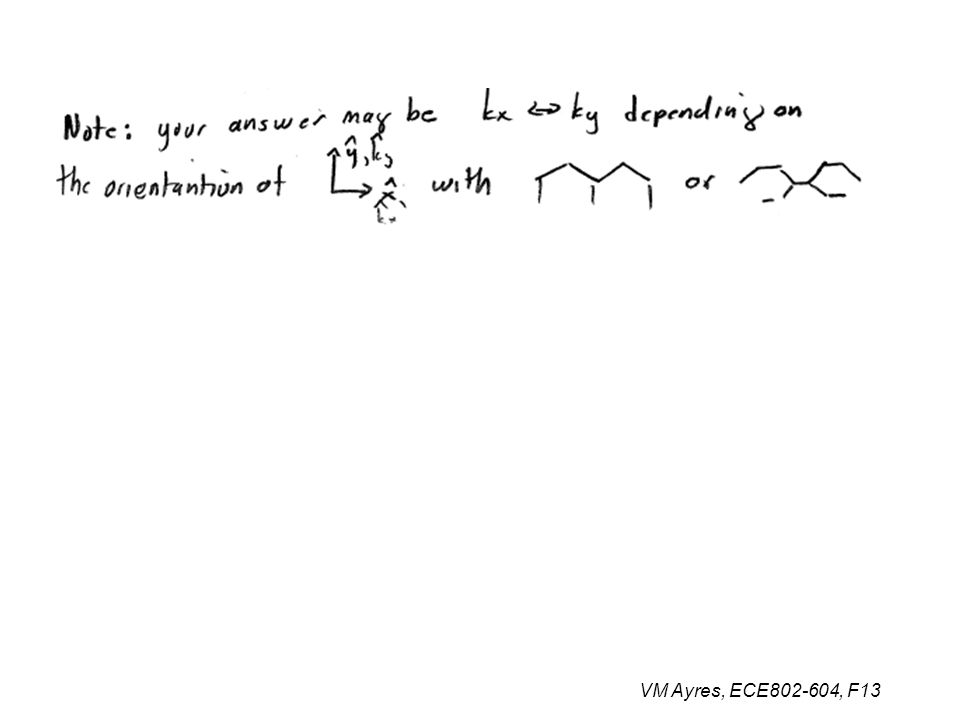 Note: your answer may be kx ↔ ky depending on
the orientantion of ŷ, k̂y x̂ k̂x with or
VM Ayres, ECE802-604, F13